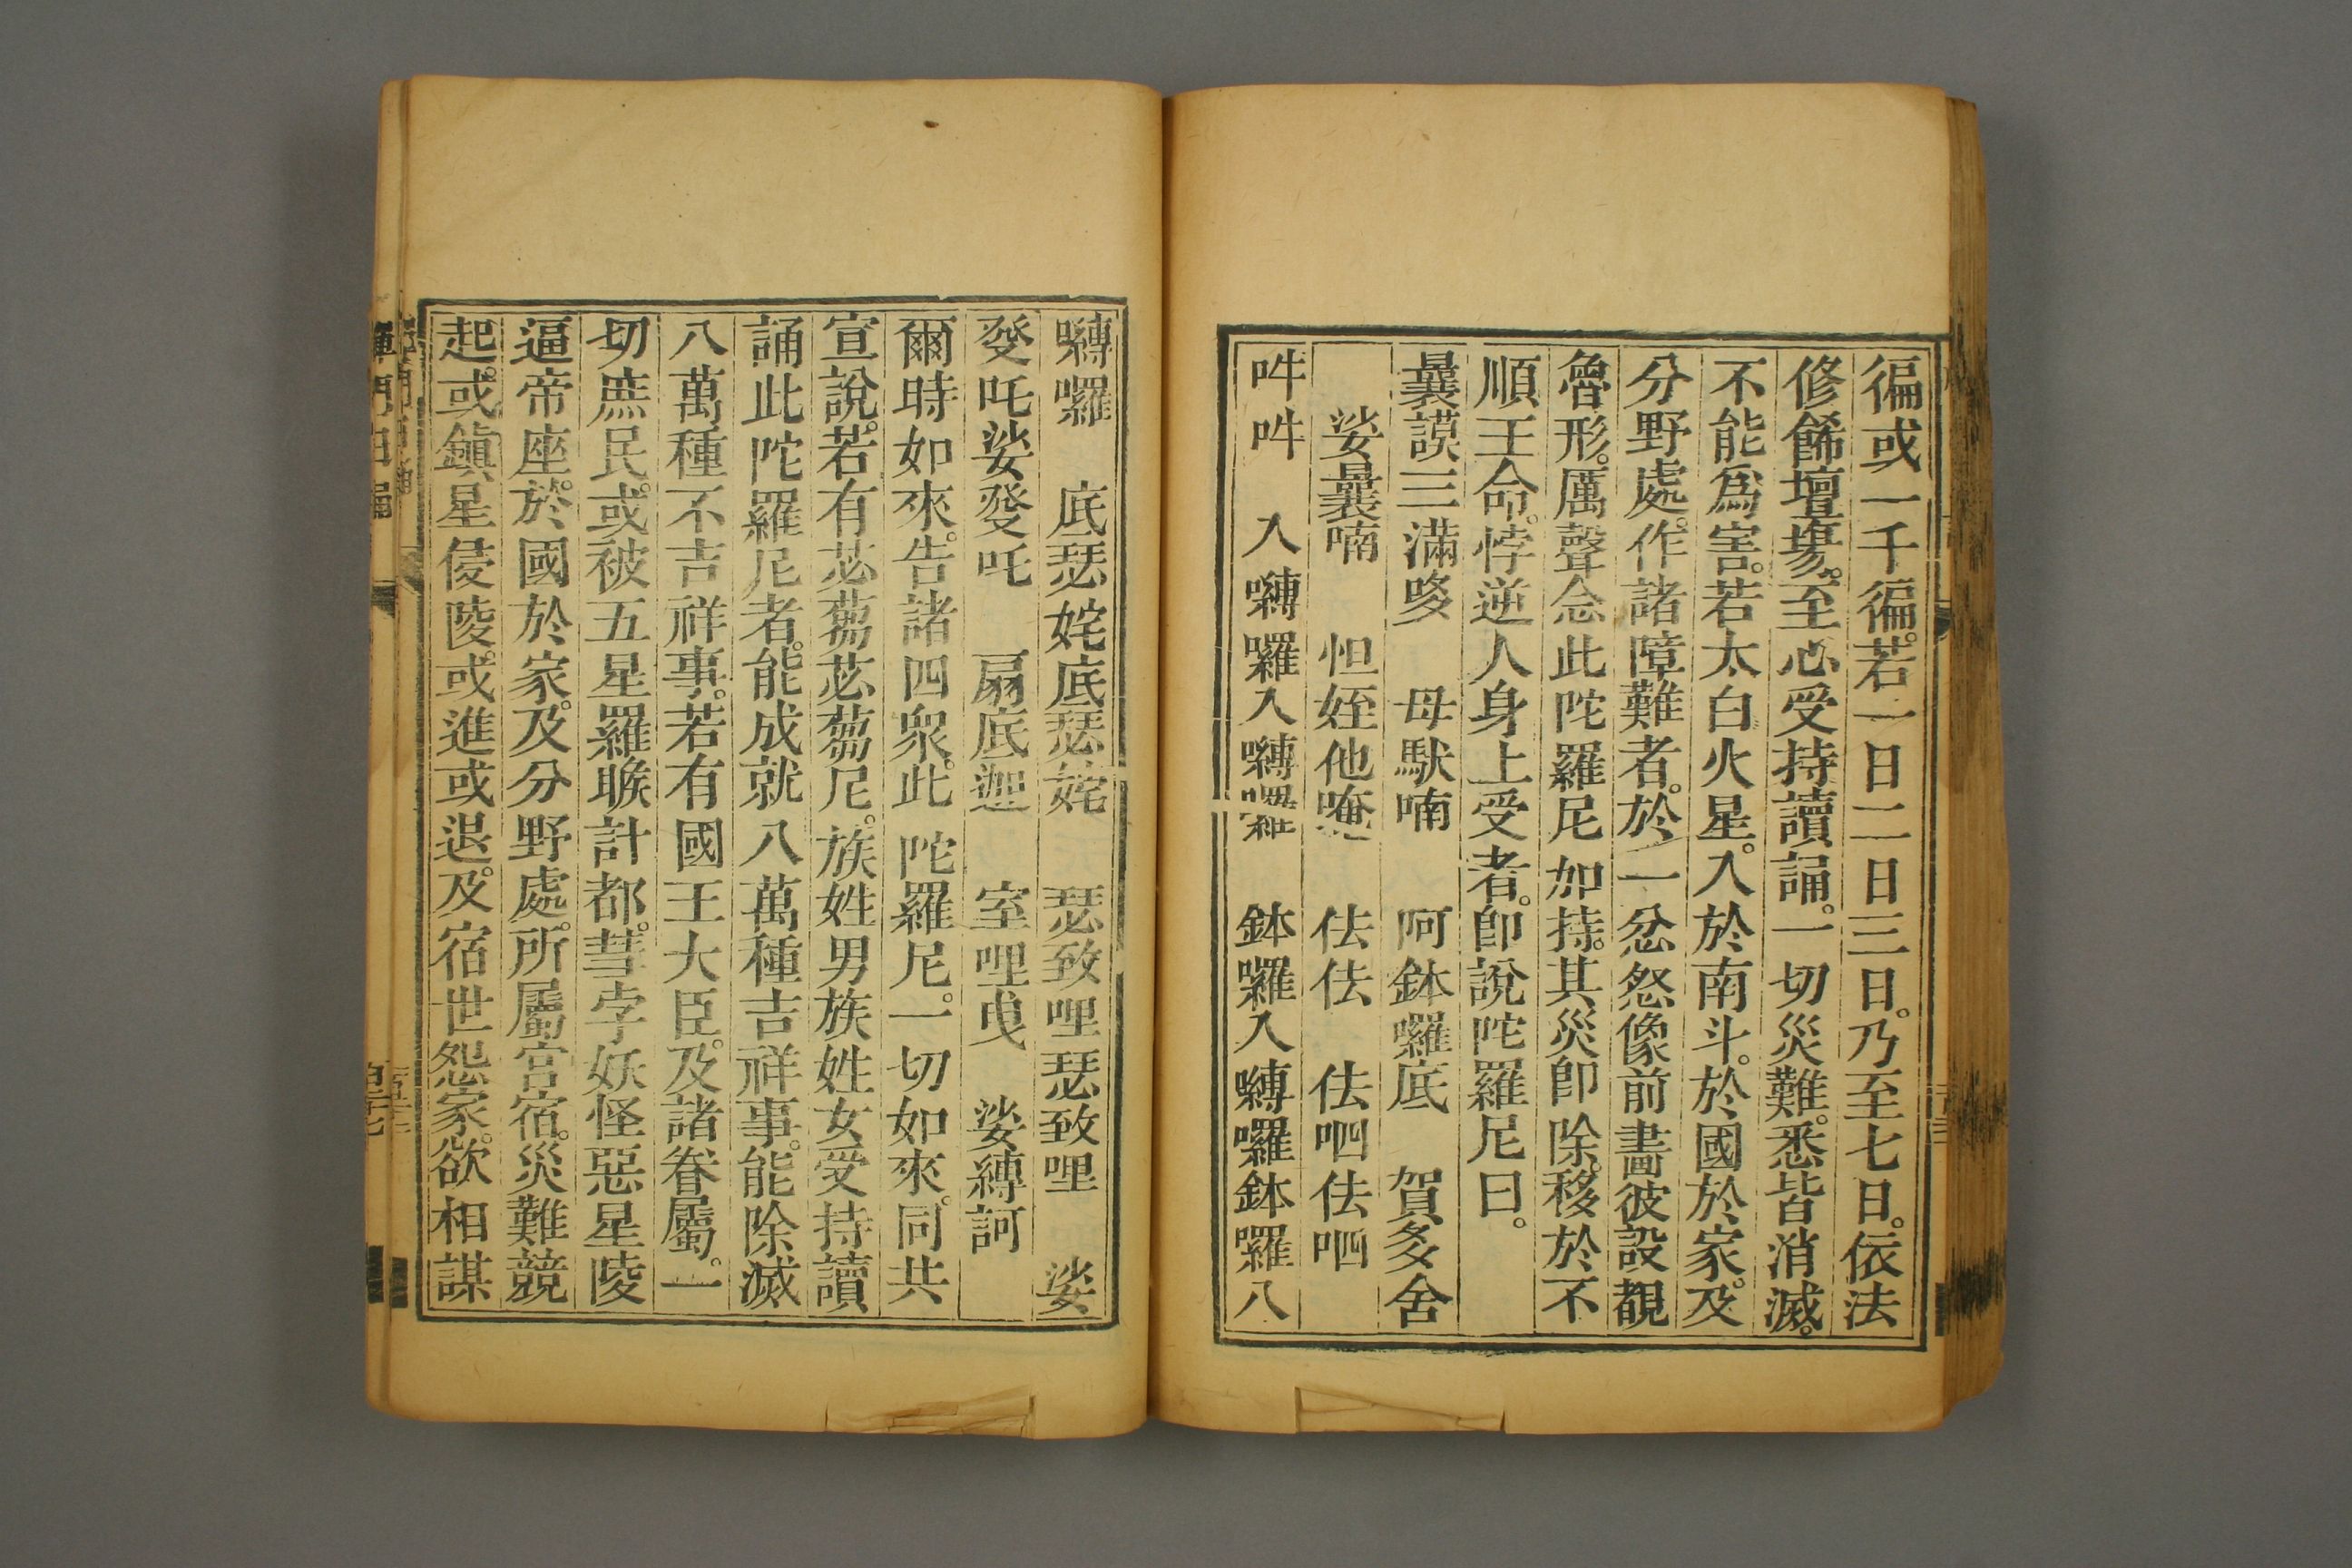 徧或一千徧。若一日二日三日。乃至七日。依法
修餙壇塲。至心受持讀誦。一切災難。悉皆消滅。
不能爲害。若太白火星。入於南斗。於國於家。及
分野處。作諸障難者。於一忿怒像前畵彼設覩
魯形。厲聲念此陀羅尼加持。其災卽除。移於不
順王命。悖逆人身上受者。卽說陀羅尼曰。
曩謨三滿哆　母馱喃　阿鉢囉底　賀多舍
娑曩喃　怛姪他唵　佉佉　佉呬佉呬
吽吽　入嚩囉入嚩囉　鉢囉入嚩囉鉢囉入
嚩囉　底瑟姹底瑟姹　瑟致哩瑟致哩　娑
發吒娑發吒　扇底迦　室哩曳　娑縛訶
爾時如來。告諸四衆。此陀羅尼。一切如來。同共
宣說。若有苾蒭苾蒭尼。族姓男族姓女受持讀
誦此陀羅尼者。能成就八萬種吉祥事。能除滅
八萬種不吉祥事。若有國王大臣。及諸眷屬。一
切庶民。或被五星羅睺計都。彗孛妖怪惡星陵
逼帝座。於國於家。及分野處。所屬宮宿。災難競
起。或鎮星侵陵。或進或退。及宿世怨家。欲相謀